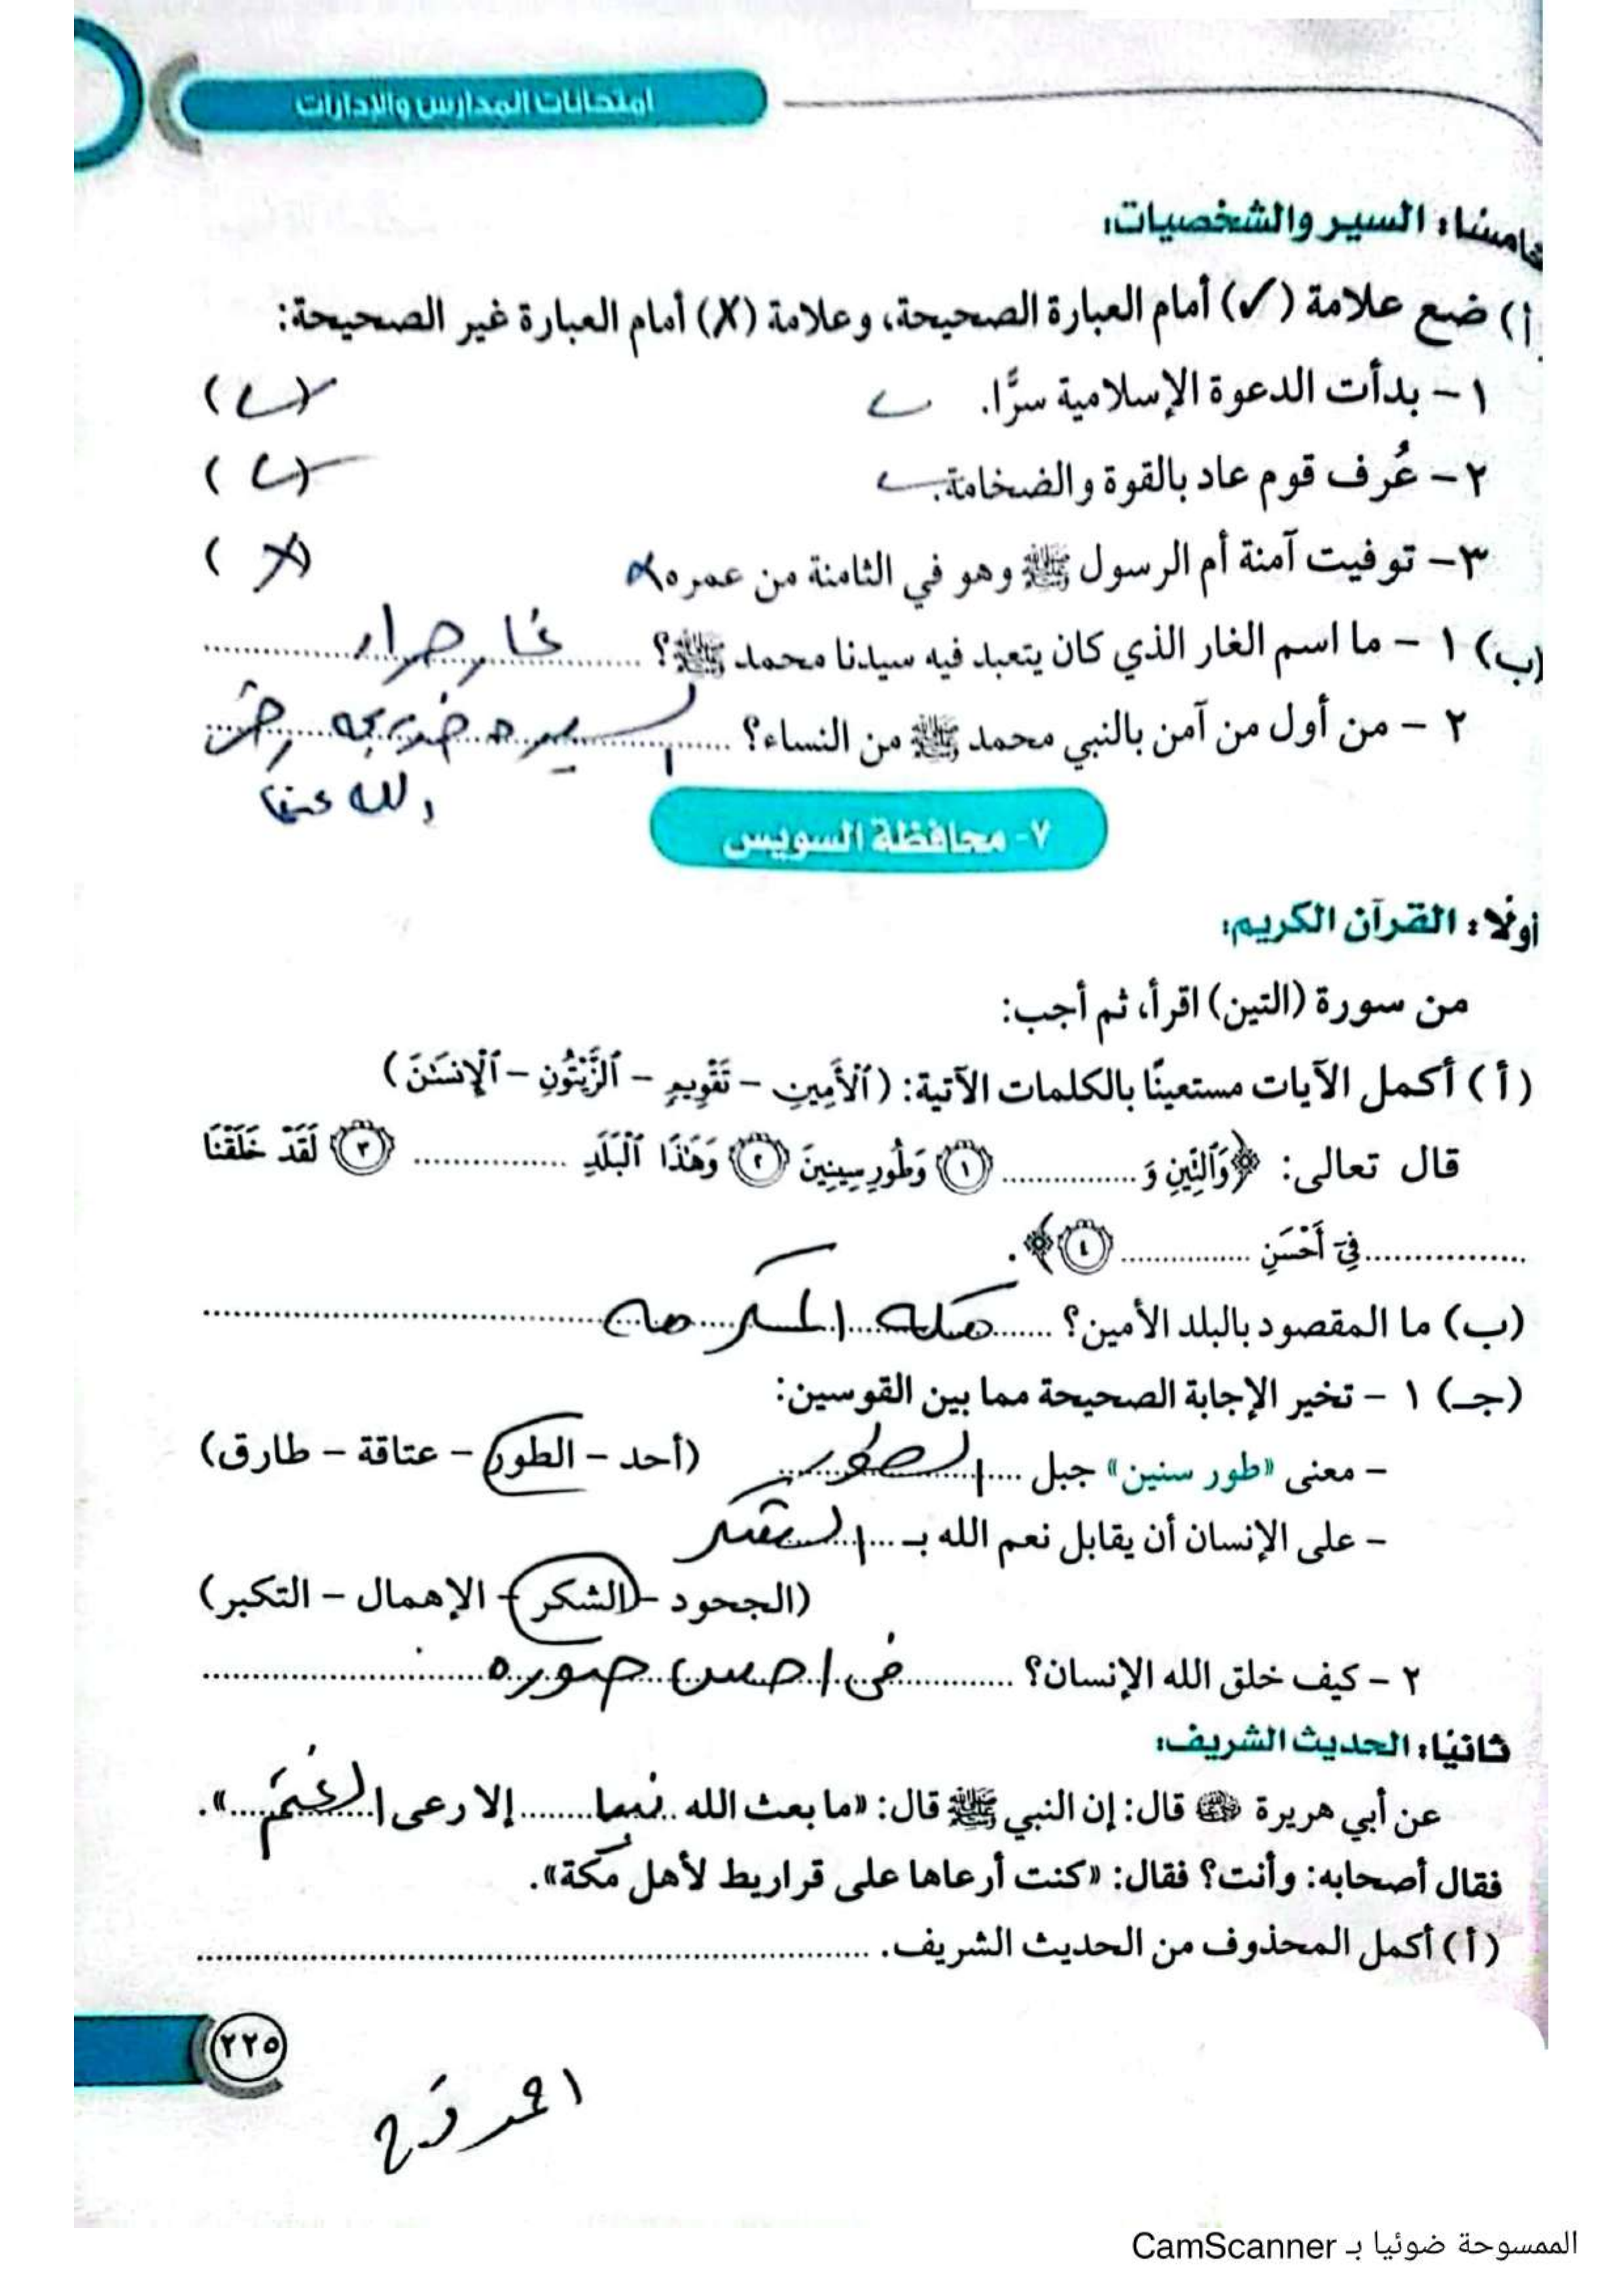 امتحانات المدارس والإدارات
خامسًا: السير والشخصيات:
(أ) ضع علامة (✓) أمام العبارة الصحيحة، وعلامة (X) أمام العبارة غير الصحيحة:
١ - بدأت الدعوة الإسلامية سرًّا. ✓ (✓)
٢ - عُرف قوم عاد بالقوة والضخامة. ✓ (✓)
٣ - توفيت آمنة أم الرسول ﷺ وهو في الثامنة من عمره X (X)
(ب) ١ - ما اسم الغار الذي كان يتعبد فيه سيدنا محمد ﷺ؟ غار حراء
٢ - من أول من آمن بالنبي محمد ﷺ من النساء؟ السيده خديجه رضى
الله عنها
٧- محافظة السويس
أولًا: القرآن الكريم:
من سورة (التين) اقرأ، ثم أجب:
(أ) أكمل الآيات مستعينًا بالكلمات الآتية: (ٱلْأَمِينِ - تَقْوِيمٍ - ٱلزَّيْتُونِ - ٱلْإِنسَـٰنَ)
قال تعالى: ﴿وَٱلتِّينِ وَ............... ١ وَطُورِ سِينِينَ ٢ وَهَـٰذَا ٱلْبَلَدِ ............... ٣ لَقَدْ خَلَقْنَا
............... فِىٓ أَحْسَنِ ............... ٤﴾.
(ب) ما المقصود بالبلد الأمين؟ مكه المكرمه
(جـ) ١ - تخير الإجابة الصحيحة مما بين القوسين:
- معنى «طور سنين» جبل الطور (أحد - الطور - عتاقة - طارق)
- على الإنسان أن يقابل نعم الله بـ الشكر
(الجحود - الشكر - الإهمال - التكبر)
٢ - كيف خلق الله الإنسان؟ فى احسن صوره
ثانيًا: الحديث الشريف:
عن أبي هريرة رضي الله عنه قال: إن النبي ﷺ قال: «ما بعث الله نبيا إلا رعى الغنم».
فقال أصحابه: وأنت؟ فقال: «كنت أرعاها على قراريط لأهل مكة».
(أ) أكمل المحذوف من الحديث الشريف. ...............
٢٢٥
الممسوحة ضوئيا بـ CamScanner